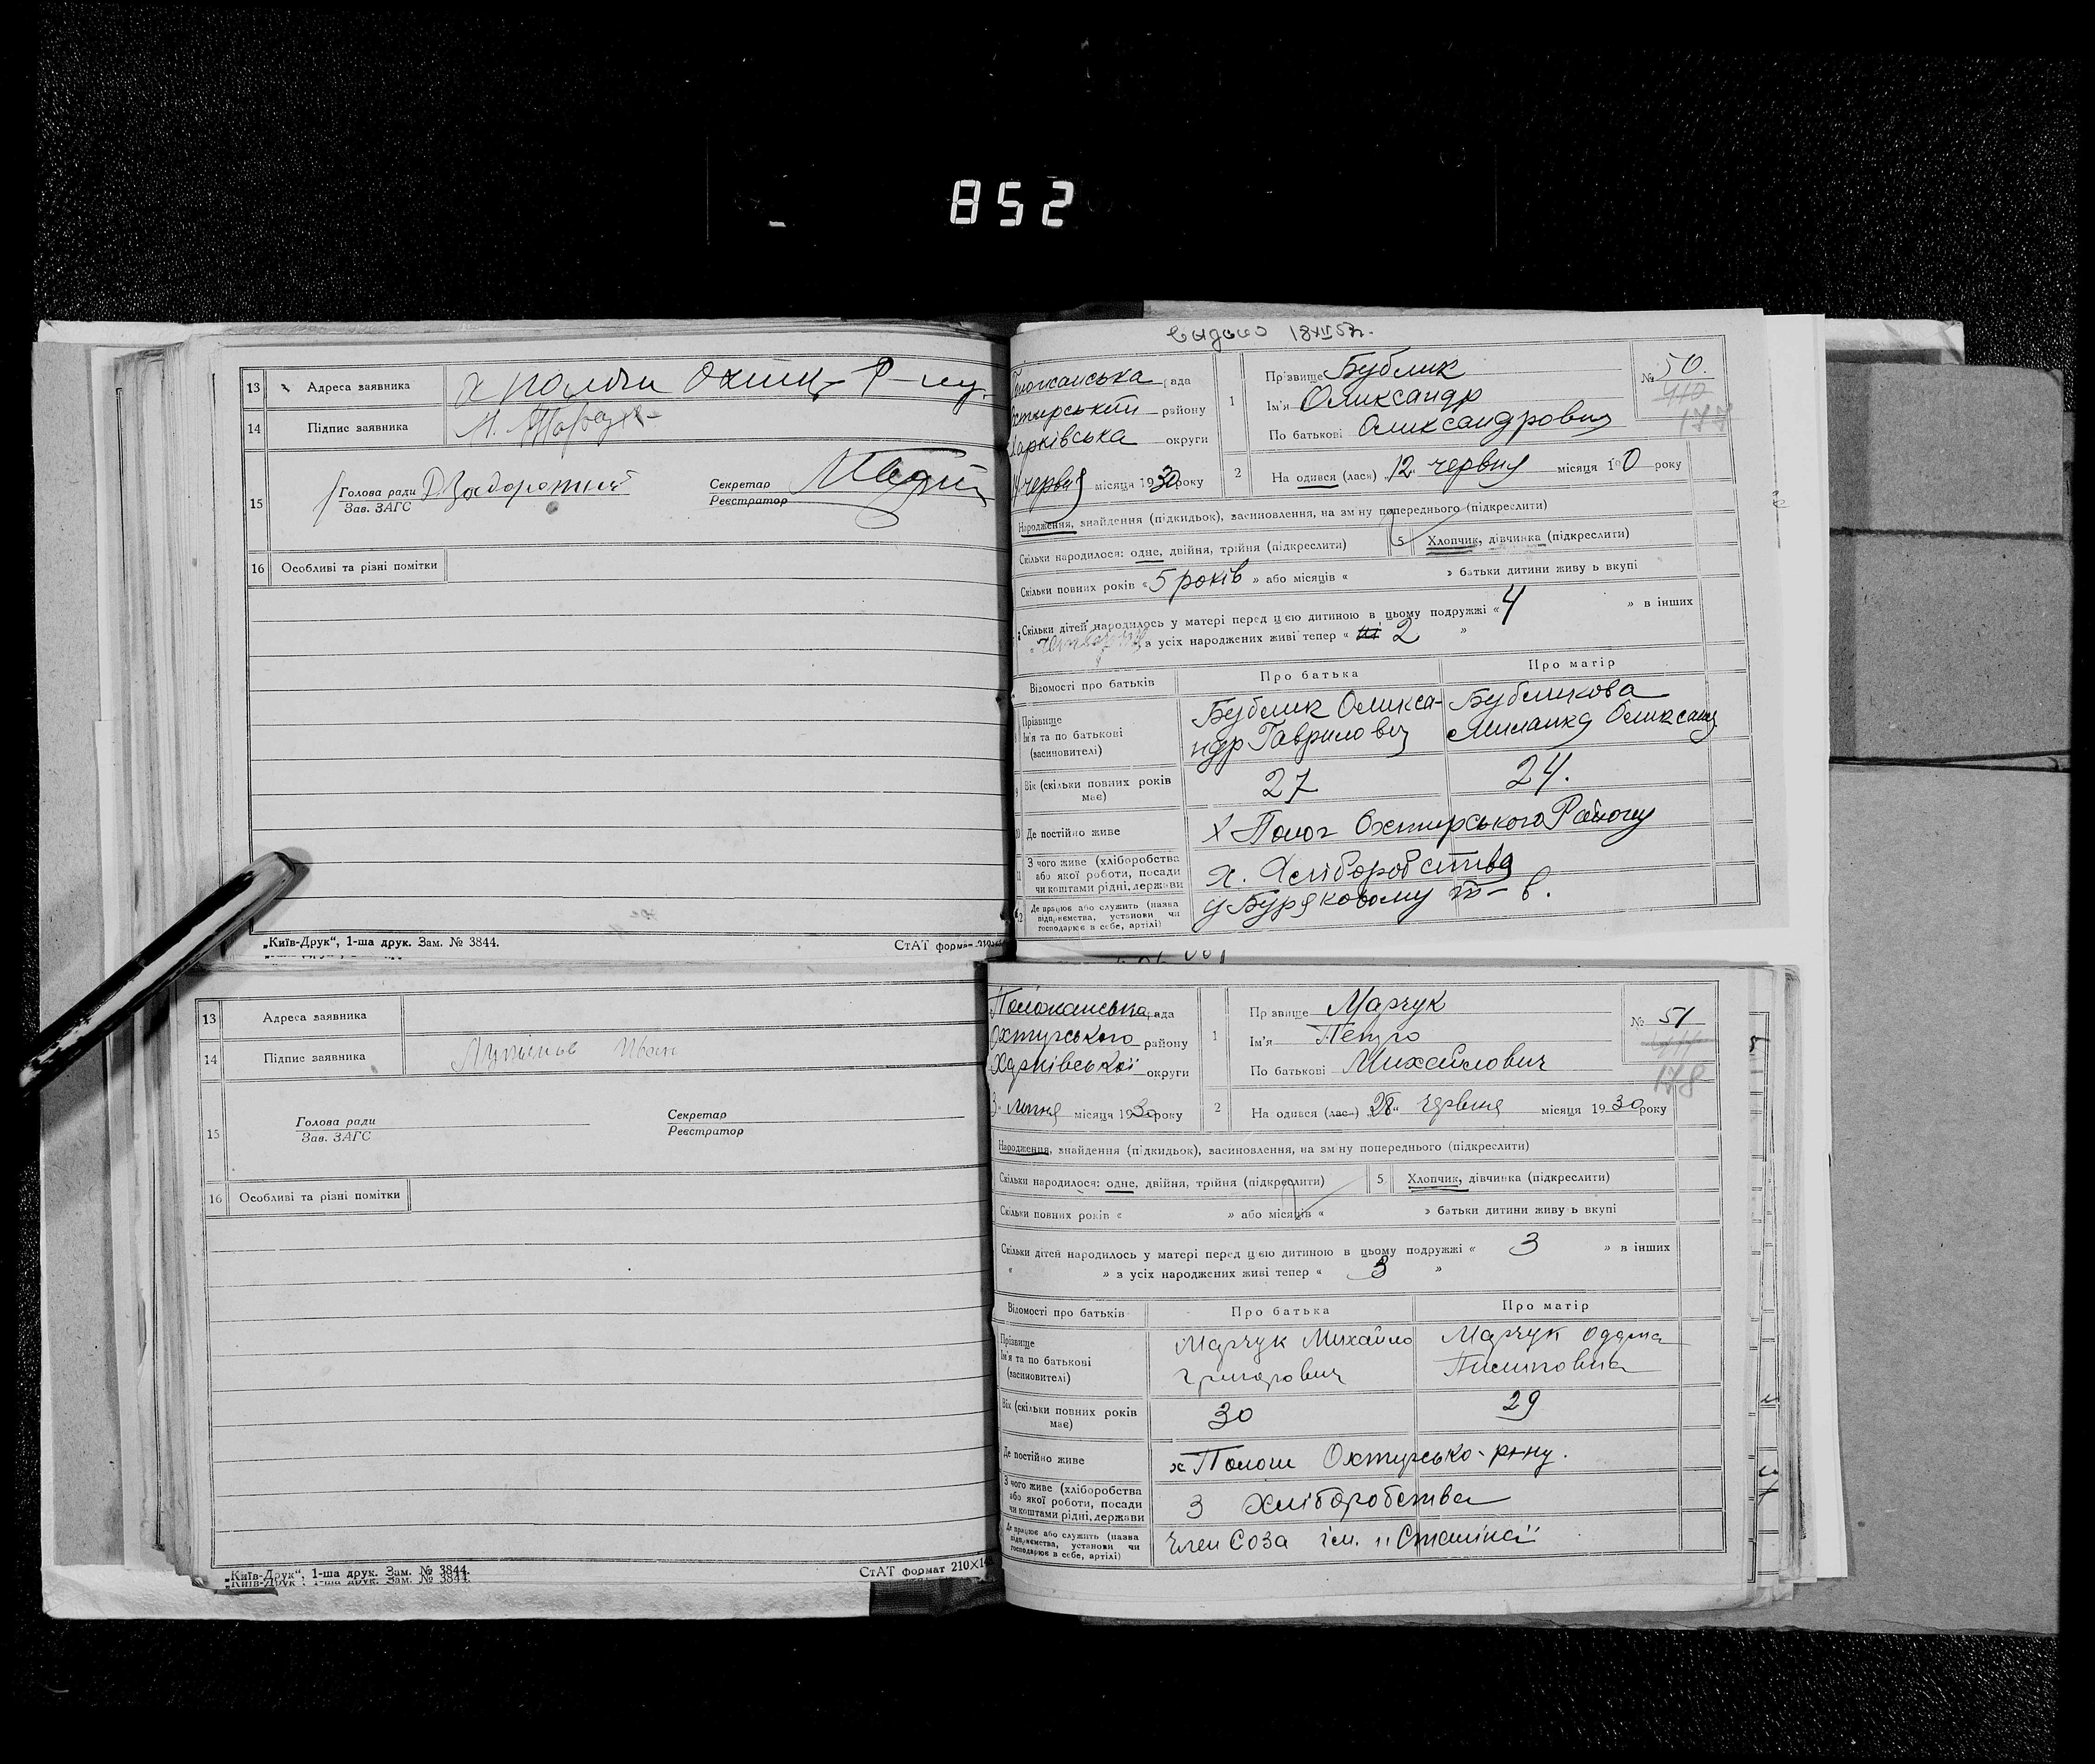 852
13 Адреса заявника х Пологи Охтир. Р-ну.
14 Підпис заявника
15 Голова ради Задорожний Секретар
Зав. ЗАГС Реєстратор
16 Особливі та різні помітки
„Київ-Друк“, 1-ша друк. Зам. № 3844. СтАТ формат 210×
13 Адреса заявника
14 Підпис заявника Іван
15 Голова ради Секретар
Зав. ЗАГС Реєстратор
16 Особливі та різні помітки
„Київ-Друк“, 1-ша друк. Зам. № 3844. СтАТ формат 210×14
Выдано 18 57г.
рада 1 Прізвище Бублик № 50.
району Ім'я Олександр 410
Харківська округи По батькові Олександрович 177
червня місяця 1930 року 2 На одився (лася) „12“ червня місяця 1 0 року
Народження, знайдення (підкидьок), засиновлення, на зміну попереднього (підкреслити)
Скільки народилося: одне, двійня, трійня (підкреслити) 5 Хлопчик, дівчинка (підкреслити)
Скільки повних років «5 років» або місяців « » батьки дитини живуть вкупі
Скільки дітей народилось у матері перед цією дитиною в цьому подружжі «4 » в інших
з усіх народжених живі тепер « 2 »
Відомості про батьків Про батька Про матір
Прізвище Бублик Олекса- Бубликова
Ім'я та по батькові ндр Гаврилович Миланка Олександ
(засиновителі)
9 Вік (скільки повних років має) 27 24.
10 Де постійно живе Х Полог Охтирського Району
11 З чого живе (хліборобства або якої роботи, посади чи коштами рідні, держави х. Хліборобства
12 Де працює або служить (назва підприємства, установи чи господарює в себе, артілі) у Буряковому т-в.
Положанська рада 1 Прізвище Марчук № 51
Охтирського району Ім'я Петро
Харківської округи По батькові Михайлович 178
3 липня місяця 1930 року 2 На одився (лася) „28“ червня місяця 1930 року
Народження, знайдення (підкидьок), засиновлення, на зміну попереднього (підкреслити)
Скільки народилося: одне, двійня, трійня (підкреслити) 5 Хлопчик, дівчинка (підкреслити)
Скільки повних років « » або місяців « » батьки дитини живуть вкупі
Скільки дітей народилось у матері перед цією дитиною в цьому подружжі « 3 » в інших
« » з усіх народжених живі тепер « 3 »
Відомості про батьків Про батька Про матір
Прізвище Марчук Михайло Марчук
Ім'я та по батькові Григорович
(засиновителі)
Вік (скільки повних років має) 30 29
Де постійно живе х Пологи Охтирсько- р-ну.
З чого живе (хліборобства або якої роботи, посади чи коштами рідні, держави З Хліборобства
Де працює або служить (назва підприємства, установи чи господарює в себе, артілі) Член Соза ім. „Сталіна“